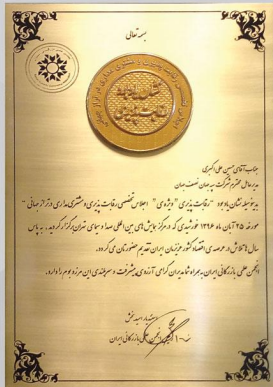 بسمه تعالی
نشان یادبود
رقابت پذیری
جناب آقای حسن علی اکبری
مدیرعامل محترم شرکت سپه جهان نصف جهان
بدینوسیله نشان یادبود "رقابت پذیری" ویژه‌ی "اجلاس تخصصی رقابت پذیری و مشتری مداری در تراز جهانی"
مورخه ۲۵ آبان ماه ۱۳۹۶ خورشیدی که در مرکز همایش های بین المللی صدا و سیمای تهران برگزار گردید، به پاس
سال ها تلاش در عرصه ی اقتصاد کشور عزیزمان ایران تقدیم حضورتان می گردد.
انجمن علمی بازرگانی ایران به همراه نماد ایران گرامی آرزوی پیشرفت و سربلندی این مرز و بوم را دارد.
انجمن علمی بازرگانی ایران